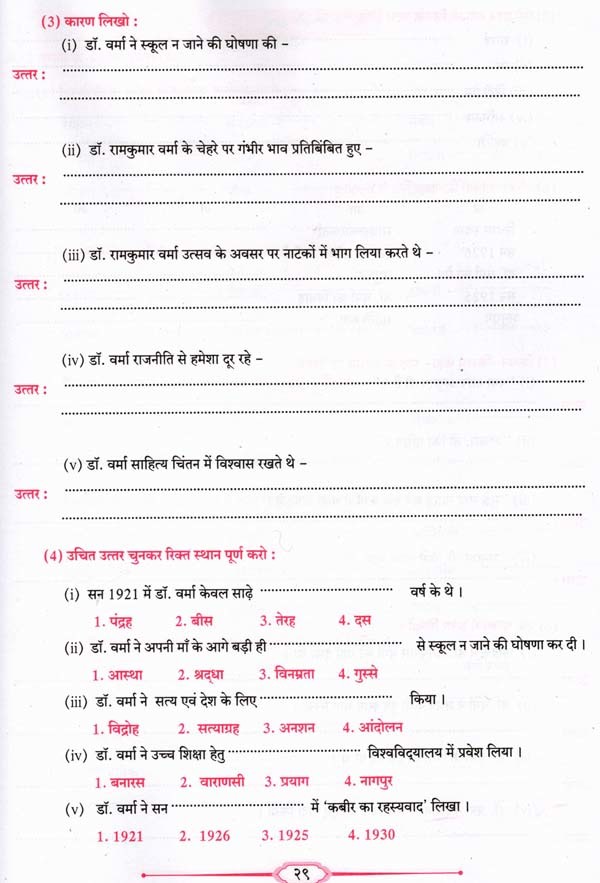 (3) कारण लिखो :
(i) डॉ. वर्मा ने स्कूल न जाने की घोषणा की –
उत्तर :
(ii) डॉ. रामकुमार वर्मा के चेहरे पर गंभीर भाव प्रतिबिंबित हुए –
उत्तर :
(iii) डॉ. रामकुमार वर्मा उत्सव के अवसर पर नाटकों में भाग लिया करते थे –
उत्तर :
(iv) डॉ. वर्मा राजनीति से हमेशा दूर रहे –
उत्तर :
(v) डॉ. वर्मा साहित्य चिंतन में विश्वास रखते थे –
उत्तर :
(4) उचित उत्तर चुनकर रिक्त स्थान पूर्ण करो :
(i) सन 1921 में डॉ. वर्मा केवल साढ़े ........................ वर्ष के थे ।
1. पंद्रह 2. बीस 3. तेरह 4. दस
(ii) डॉ. वर्मा ने अपनी माँ के आगे बड़ी ही ........................ से स्कूल न जाने की घोषणा कर दी ।
1. आस्था 2. श्रद्धा 3. विनम्रता 4. गुस्से
(iii) डॉ. वर्मा ने सत्य एवं देश के लिए ........................ किया ।
1. विद्रोह 2. सत्याग्रह 3. अनशन 4. आंदोलन
(iv) डॉ. वर्मा ने उच्च शिक्षा हेतु ........................ विश्वविद्यालय में प्रवेश लिया ।
1. बनारस 2. वाराणसी 3. प्रयाग 4. नागपुर
(v) डॉ. वर्मा ने सन ........................ में ‘कबीर का रहस्यवाद’ लिखा ।
1. 1921 2. 1926 3. 1925 4. 1930
२९